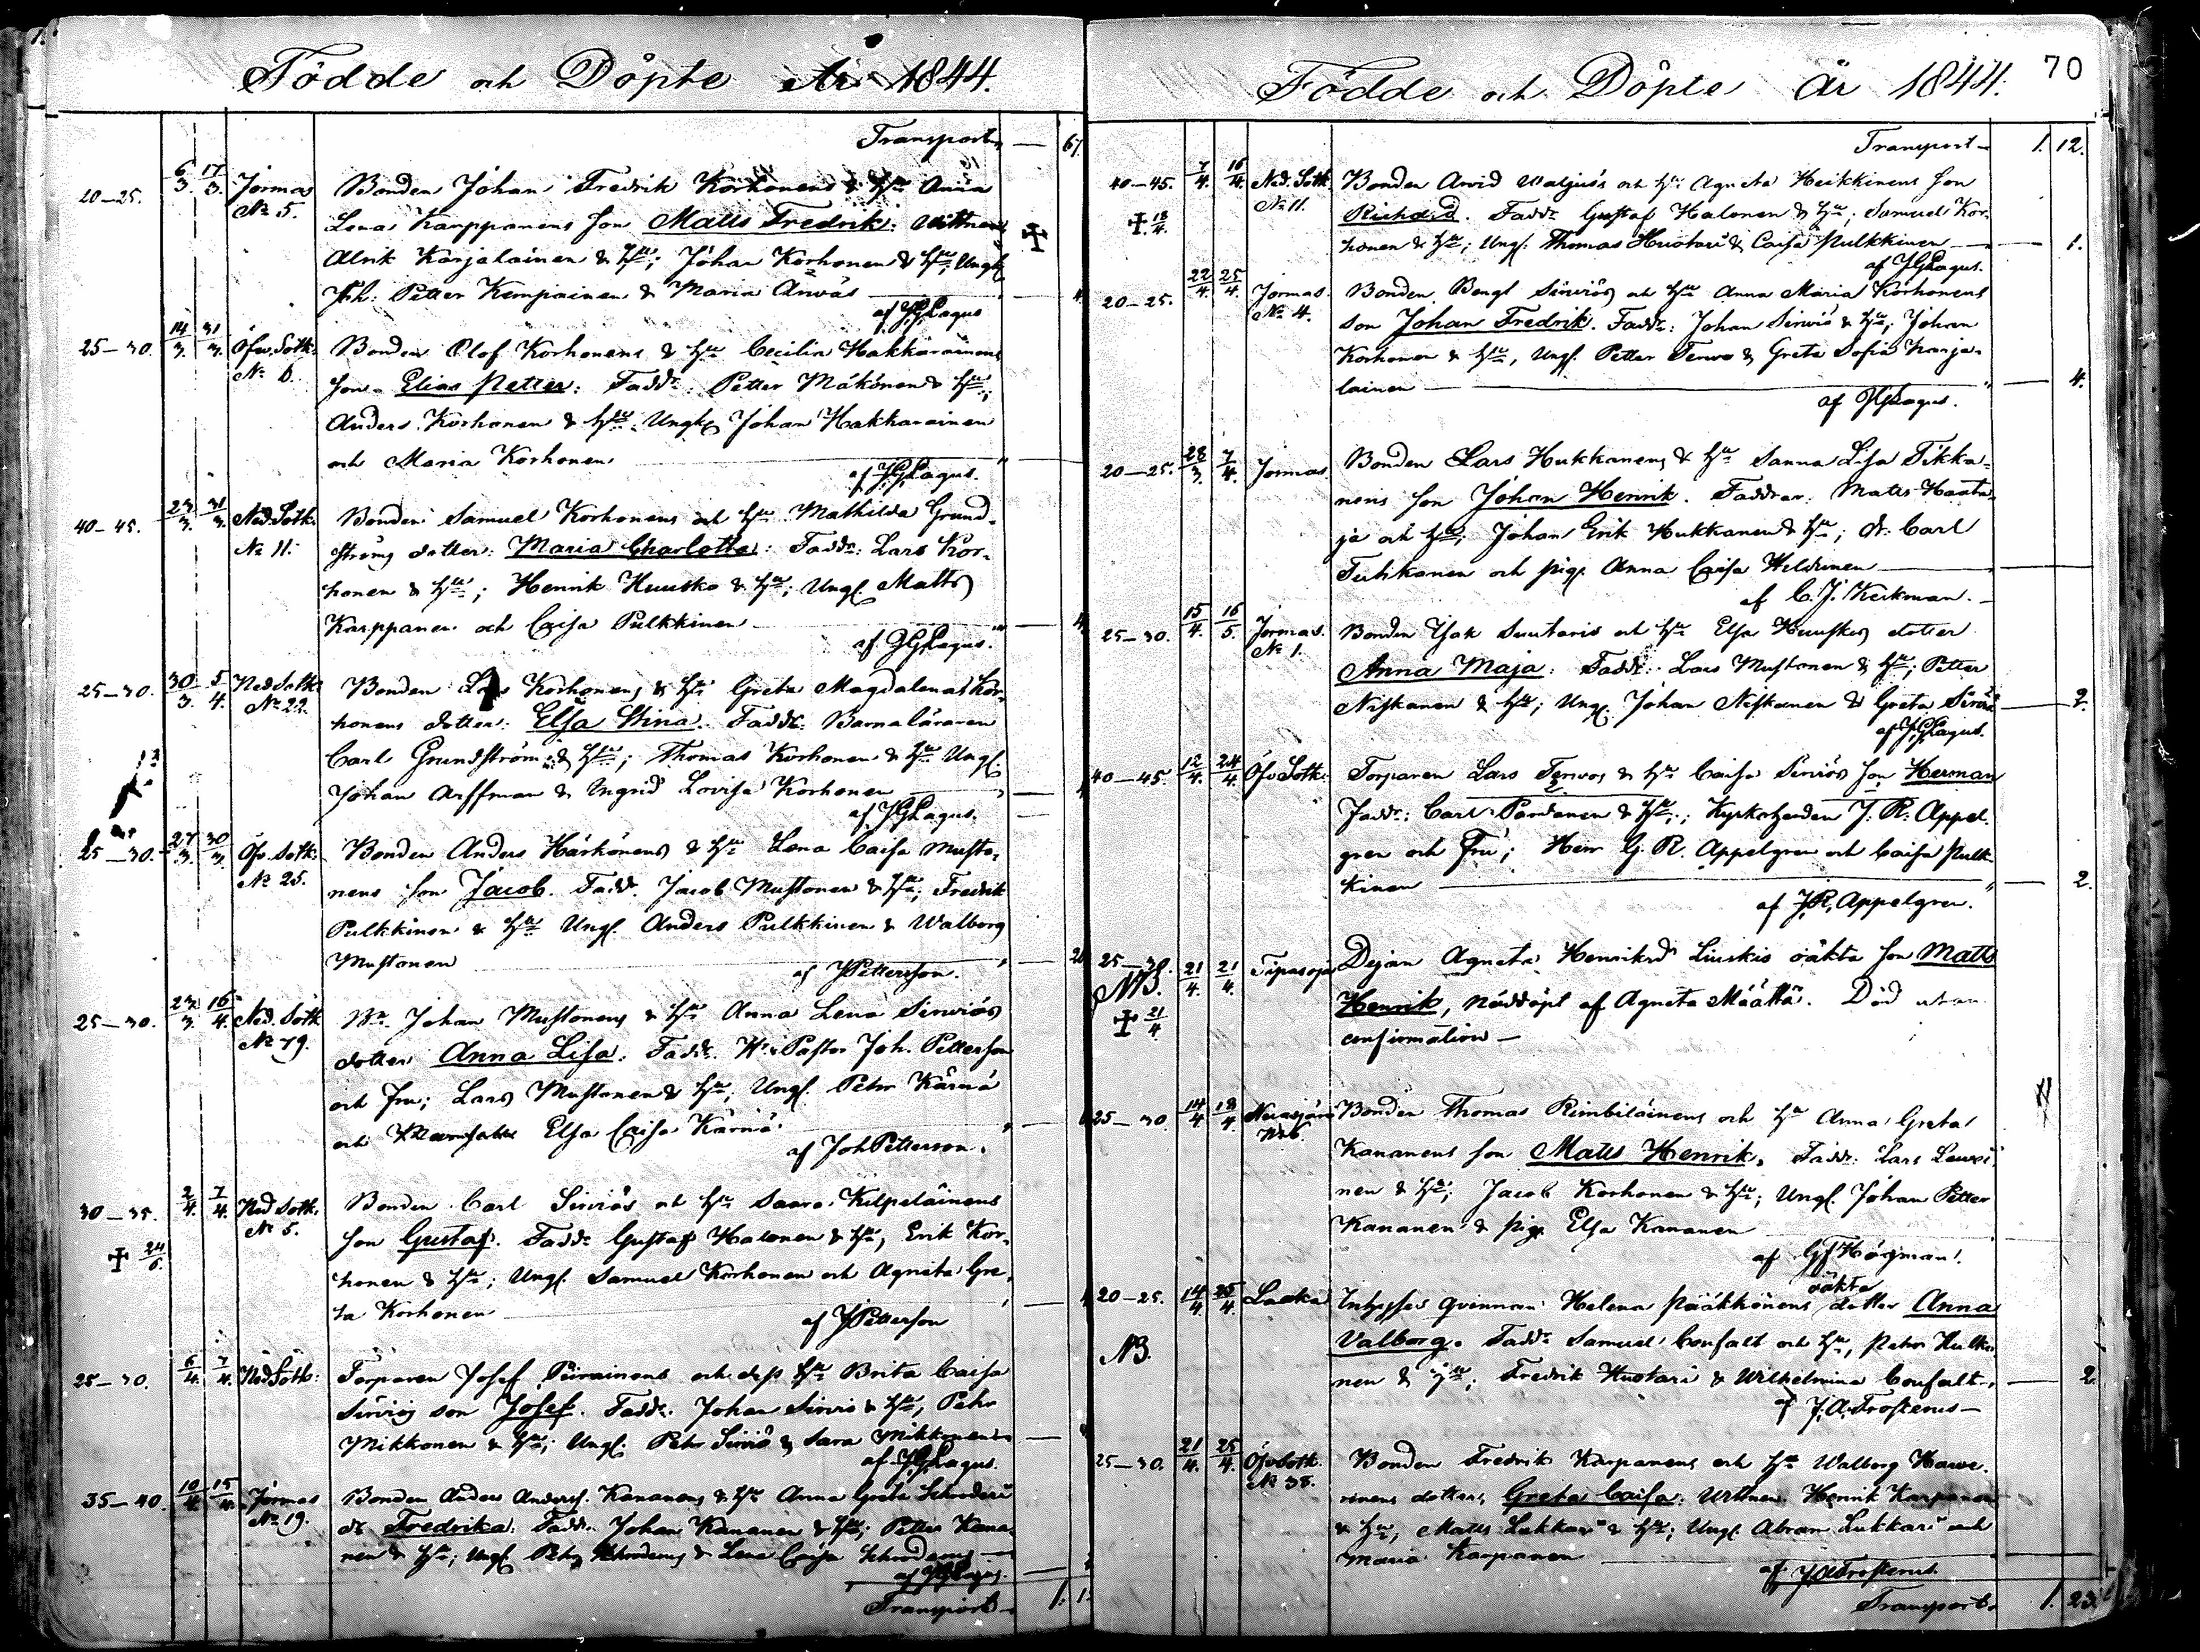 Födde och Döpte År 1844.
Transport — 61.
20—25. 6/3. 17/3. Jormas Bonden Johan Fredrik Korhonens & hu Anna
No 5. Lena Karppanens son Matts Fredrik. Wittnen
Alrik Karjalainen & hu; Johan Korhonen & hu; Ungl.
Joh. Petter Kempainen & Maria Arwas — 4.
af JGLagus
25—30. 14/3. 31/3. Öfv. Sotk. Bonden Olof Korhonens & hu Cecilia Hakkarainens
No 6. son Elias Petter. Faddr. Petter Mäkönen & hu;
Anders Korhonen & hu. Ungl. Johan Hakkarainen
och Maria Korhonen
af JGLagus.
40—45. 23/3. 31/3. Ned. Sotk. Bonden Samuel Korhonens och hu Mathilda Grund-
No 11. ströms dotter: Maria Charlotta: Faddr: Lars Kor-
honen & hu; Henrik Huusko & hu; Ungl. Matts
Karppanen och Caisa Pulkkinen — 4.
af JGLagus.
25—30. 30/3. 5/4. Ned Sotk. Bonden Lars Korhonens & hu Greta Magdalena Kor-
No 22. honens dotter: Elsa Stina. Faddr. Barnaläraren
Carl Grundström & hu; Thomas Korhonen & hu Ungl.
Johan Arffman & Ingrid Lovisa Korhonen
af JGLagus.
25—30. 27/3. 30/3. Öfv. Sotk. Bonden Anders Härkönens & hu Lena Caisa Musto-
No 25. nens son Jacob. Faddr. Jacob Mustonen & hu; Fredrik
Pulkkinen & hu Ungl. Anders Pulkkinen & Walborg
Mustonen
af JPettersson.
25—30. 23/3. 16/4. Ned. Sotk Bn. Johan Mustonens & hu Anna Lena Sirviös
No 19. dotter Anna Lisa. Faddr. Hr Pastor Joh. Pettersson
och fru; Lars Mustonen & hu; Ungl. Petr Kärnä
och Elsa Caisa Kärnä.
af JohPetterson.
30—35. 2/4. 7/4. Ned Sotk. Bonden Carl Sirviös och hu Saara Kilpeläinens
No 5. son Gustaf. Faddr Gustaf Halonen & hu, Erik Kor-
✝ 24/6. honen & hu; Ungl. Samuel Korhonen och Agneta Gre-
ta Korhonen
af JPetterson
25—30. 6/4. 7/4. Ned Sotk. Torparen Josef Piirainens och dess hu Brita Caisa
Sirviös son Josef. Faddr. Johan Sirviö & hu, Petr
Mikkonen & hu; Ungl. Petr Sirviö & Sara Mikkonen
af JGLagus.
35—40. 10/4. 15/4. Jormas Bonden Anders Andersf. Kananens & hu Anna Greta Schroderi
No 19. dr Fredrika. Faddr. Johan Kananen & hu; Petter Kana-
nen & hu; Ungl. Petr Schroderus & Lena Caisa Schroderus
af JGLagus.
Transport — 1. 1
Födde och Döpte År 1844. 70
Transport — 1. 12.
40—45. 7/4. 16/4. Ned. Sotk. Bonden Arvid Waljus's och hu Agneta Heikkinens son
✝ 18/4. No 11. Richard. Faddr Gustaf Halonen & hu; Samuel Kor-
honen & hu; Ungl. Thomas Huotari & Caisa Pulkkinen — 1.
af JGLagus.
20—25. 22/4. 25/4. Jormas Bonden Bengt Sirviös och hu Anna Maria Korhonens
No 4. son Johan Fredrik. Faddr: Johan Sirviö & hu; Johan
Korhonen & hu, Ungl. Petter Terwo & Greta Sofia Karja-
lainen — 4.
af JGLagus.
20—25. 28/3. 7/4. Jormas Bonden Lars Hukkanens & hu Sanna Lisa Tikka-
nens son Johan Henrik. Faddrar: Matts Haata-
ja och hu; Johan Erik Hukkanen & hu; dr. Carl
Tuhkanen och pig. Anna Caisa
af C. J. Keckman.
25—30. 15/4. 16/5. Jormas. Bonden Isak Suutaris och hu Elsa Huuskos dotter
No 1. Anna Maja. Faddr: Lars Mustonen & hu; Petter
Niskanen & hu; Ungl. Johan Niskanen & Greta Sirviö — 2.
af JGLagus.
40—45. 12/4. 24/4. Öfv Sotk. Torparen Lars Terwos & hu Caisa Sirviös son Herman
Faddr: Carl Pardanen & hu; Kyrkoherden J. R. Appel-
gren och Fru; Herr G. R. Appelgren och Caisa Pulk-
kinen — 2.
af J.R. Appelgren.
25—30. 21/4. 21/4. Tipasoja Dejan Agneta Henriksdr Liuskis oäkta son Matts
NB. Henrik, nöddöpt af Agneta Määttä. Död utan
✝ 21/4 confirmation —
25—30. 14/4 18/4 Bonden Thomas Rimbiläinens och hu Anna Greta
No 6. Kananens son Matts Henrik. Faddr: Lars Lewei-
nen & hu; Jacob Korhonen & hu; Ungl. Johan Petter
Kananen & pig. Elsa Kananen
af GfHögman.
20—25. 14/4 25/4 Laaka Inhyses qvinnan Helena Pääkkönens oäkta dotter Anna
NB. Valborg. Faddr Samuel Confalt och hu, Petr Hulko-
nen & hu; Fredrik Huotari & Wilhelmina Confalt — 2
af J.A. Frosterus —
25—30. 21/4. 25/4. Öfv Sotk. Bonden Fredrik Karpanens och hu Walborg Hawe-
No 38. rinens dotter, Greta Caisa. Wittnen Henrik Karpanen
& hu; Matts Lukkari & hu; Ungl. Abram Lukkari och
Maria Karpanen
af JAFrosterus.
Transport — 1. 23.